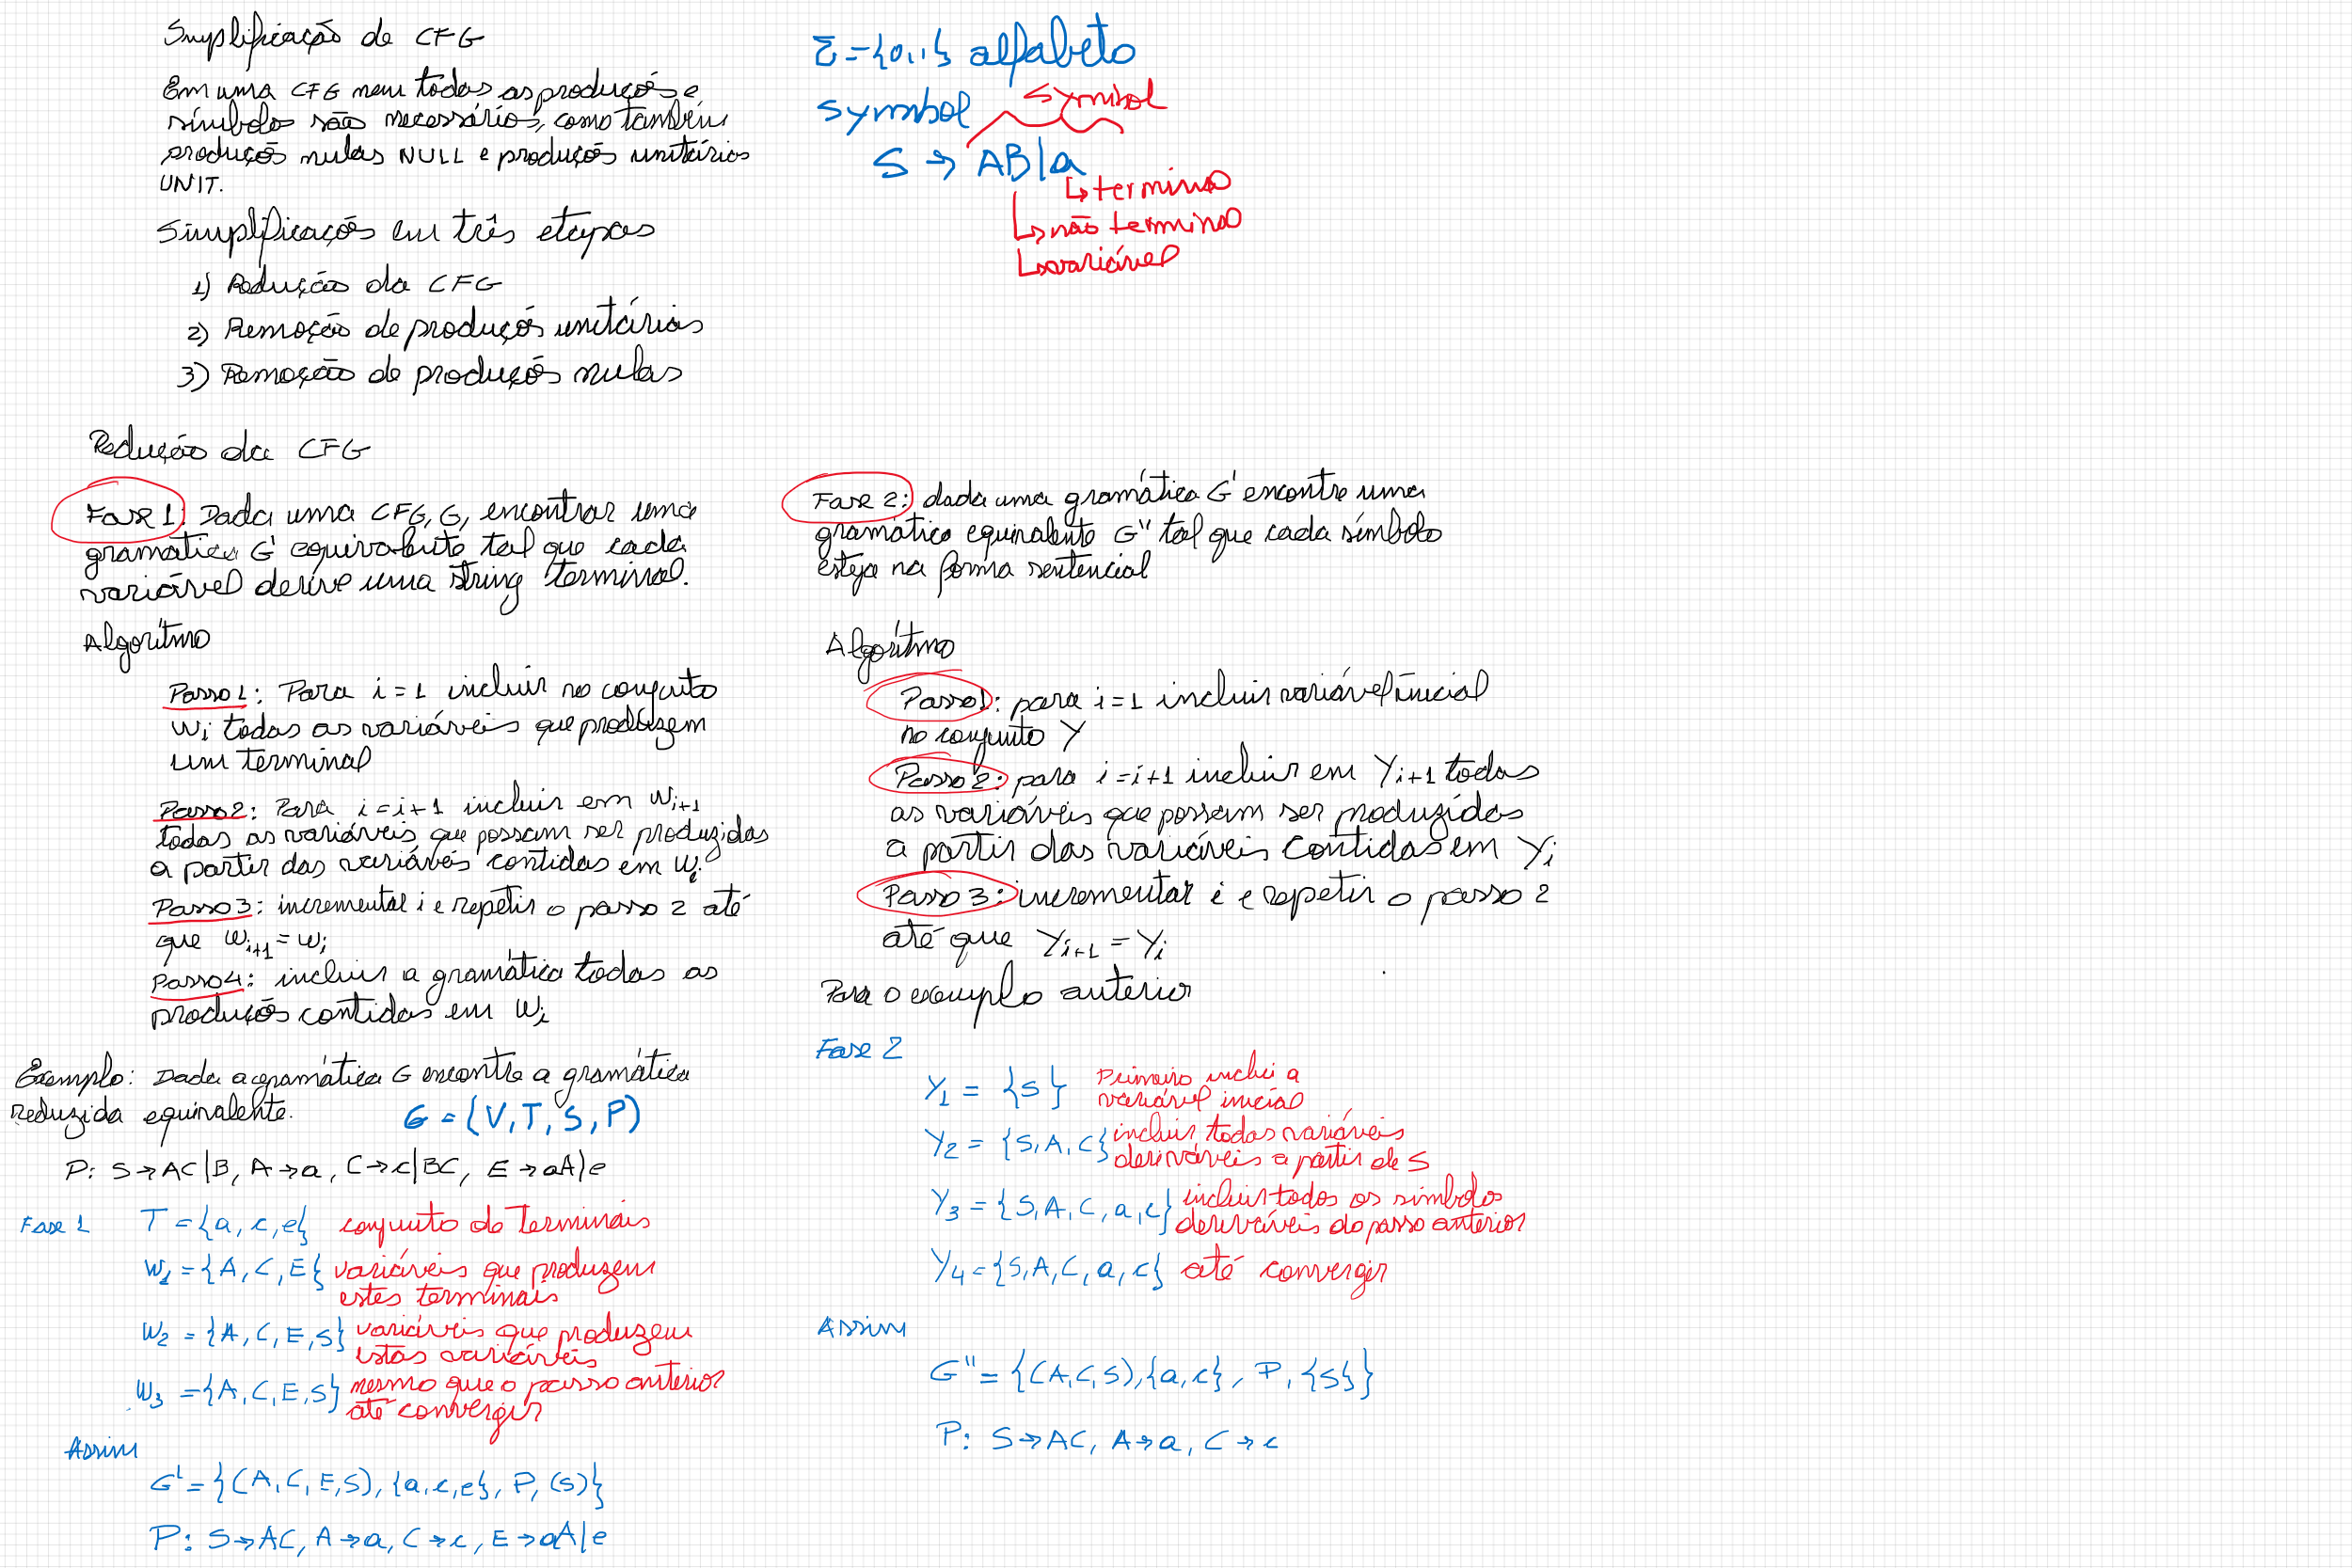 Simplificação de CFG
Em uma CFG nem todas as produções e
símbolos são necessários, como também
produções nulas NULL e produções unitárias
UNIT.
Simplificações em três etapas
1) Redução da CFG
2) Remoção de produções unitárias
3) Remoção de produções nulas
Σ = {0,1} alfabeto
symbol
symbol
S → AB|a
↳ terminal
↳ não terminal
↳ variável
Redução da CFG
Fase 1: Dada uma CFG, G, encontrar uma
gramática G' equivalente tal que cada
variável derive uma string terminal.
Algoritmo
Passo 1: Para i = 1 incluir no conjunto
Wi todas as variáveis que produzem
um terminal
Passo 2: Para i = i+1 incluir em Wi+1
todas as variáveis que possam ser produzidas
a partir das variáveis contidas em Wi
Passo 3: incrementar i e repetir o passo 2 até
que Wi+1 = Wi
Passo 4: incluir a gramática todas as
produções contidas em Wi
Exemplo: Dada a gramática G encontre a gramática
reduzida equivalente.
G = (V, T, S, P)
P: S → AC|B, A → a, C → c|BC, E → aA|e
Fase 1
T = {a, c, e} conjunto do terminais
W1 = {A, C, E} variáveis que produzem
estes terminais
W2 = {A, C, E, S} variáveis que produzem
estas variáveis
W3 = {A, C, E, S} mesmo que o passo anterior
até convergir
Assim
G' = {(A, C, E, S), {a, c, e}, P, (S)}
P: S → AC, A → a, C → c, E → aA|e
Fase 2: dada uma gramática G' encontre uma
gramática equivalente G'' tal que cada símbolo
esteja na forma sentencial
Algoritmo
Passo 1: para i = 1 incluir variável inicial
no conjunto Y
Passo 2: para i = i+1 incluir em Yi+1 todas
as variáveis que possam ser produzidas
a partir das variáveis contidas em Yi
Passo 3: incrementar i e repetir o passo 2
até que Yi+1 = Yi
Para o exemplo anterior
Fase 2
Y1 = {S} Primeiro inclui a
variável inicial
Y2 = {S, A, C} incluir todas variáveis
deriváveis a partir de S
Y3 = {S, A, C, a, c} incluir todos os símbolos
deriváveis do passo anterior
Y4 = {S, A, C, a, c} até convergir
Assim
G'' = {(A, C, S), {a, c}, P, {S}}
P: S → AC, A → a, C → c